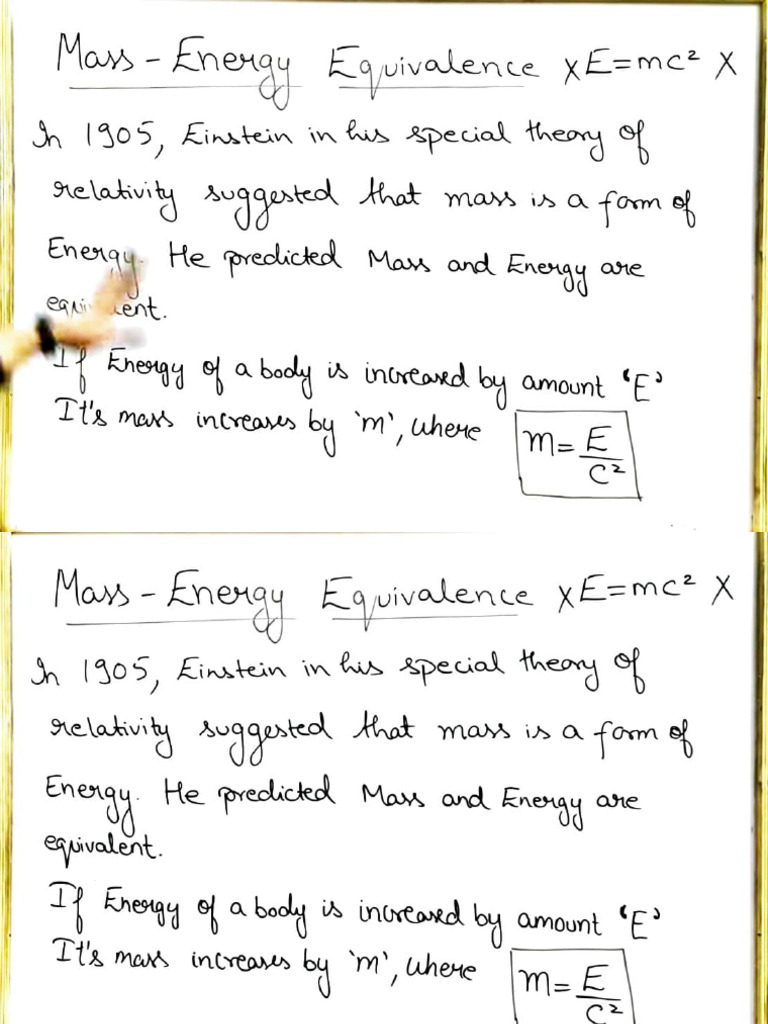 Mass - Energy Equivalence x E=mc² x
In 1905, Einstein in his special theory of
relativity suggested that mass is a form of
Energy. He predicted Mass and Energy are
equivalent.
If Energy of a body is increased by amount 'E'
It's mass increases by 'm', where m = E/C²
Mass - Energy Equivalence x E=mc² x
In 1905, Einstein in his special theory of
relativity suggested that mass is a form of
Energy. He predicted Mass and Energy are
equivalent.
If Energy of a body is increased by amount 'E'
It's mass increases by 'm', where m = E/C²